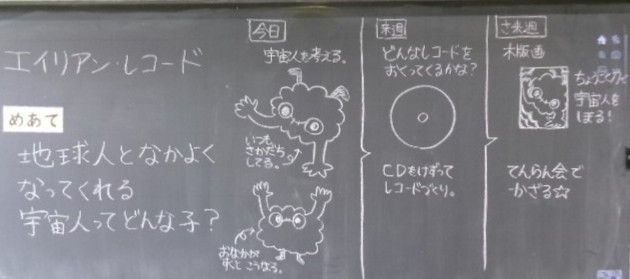 エイリアン・レコード
めあて
地球人となかよく
なってくれる
宇宙人ってどんな子？
今日
宇宙人を考える。
いつも
さかだち
してる。
おなかが
すくとこうなる。
来週
どんなレコードを
おくってくるかな？
CDをけずって
レコードづくり。
さ来週
木版画
ちょうこくとうで
宇宙人を
ほる！
てんらん会で
かざる☆